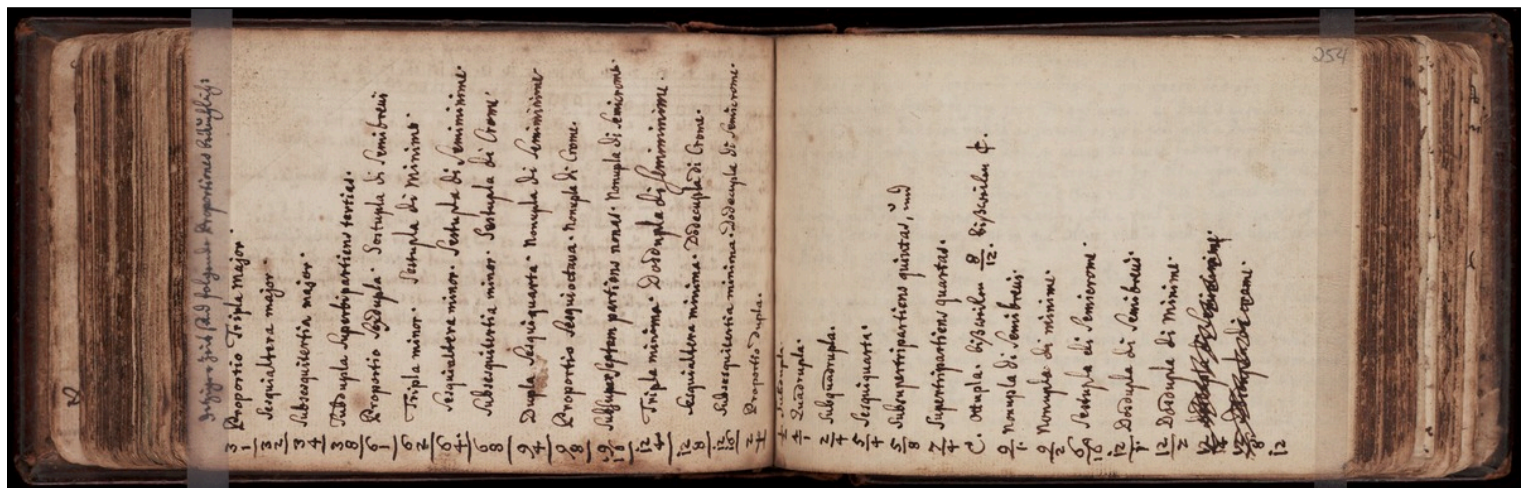 254
Jetziger Zeit sind folgende Proportiones
3/1 Proportio Tripla Major.
3/2 Sesquialtera major.
3/4 Subsesquitertia major.
3/8 Subdupla Superbipartiens tertias.
6/1 Proportio Sextupla. Sestupla di Semibrevi
6/2 Tripla minor. Sestupla di Minime.
6/4 Sesquialtera minor. Sestupla di Semiminime.
6/8 Subsesquitertia minor. Sestupla di Crome.
9/4 Dupla Sesquiquarta. Nonupla di Semiminime
9/8 Proportio Sesquioctava. Nonupla di Crome.
9/16 Subsuperseptem partiens nonas. Nonupla di Semicrome.
12/4 Tripla minima. Dosdupla di Semiminime.
12/8 Sesquialtera minima. Dodecupla di Crome.
12/16 Subsesquitertia minima. Dodecupla di Semicrome.
2/1 Proportio Dupla.
Subdupla
4/1 Quadrupla.
2/4 Subquadrupla.
5/4 Sesquiquarta.
5/8 Subsupertripartiens quintas, und
7/4 Supertripartiens quartas.
C Ottupla. 8/12.
9/1 Nonupla di Semibrevi.
9/2 Nonupla di minime.
6/16 Sestupla di Semicrome.
12/1 Dosdupla di Semibrevi.
12/2 Dosdupla di Minime.
12